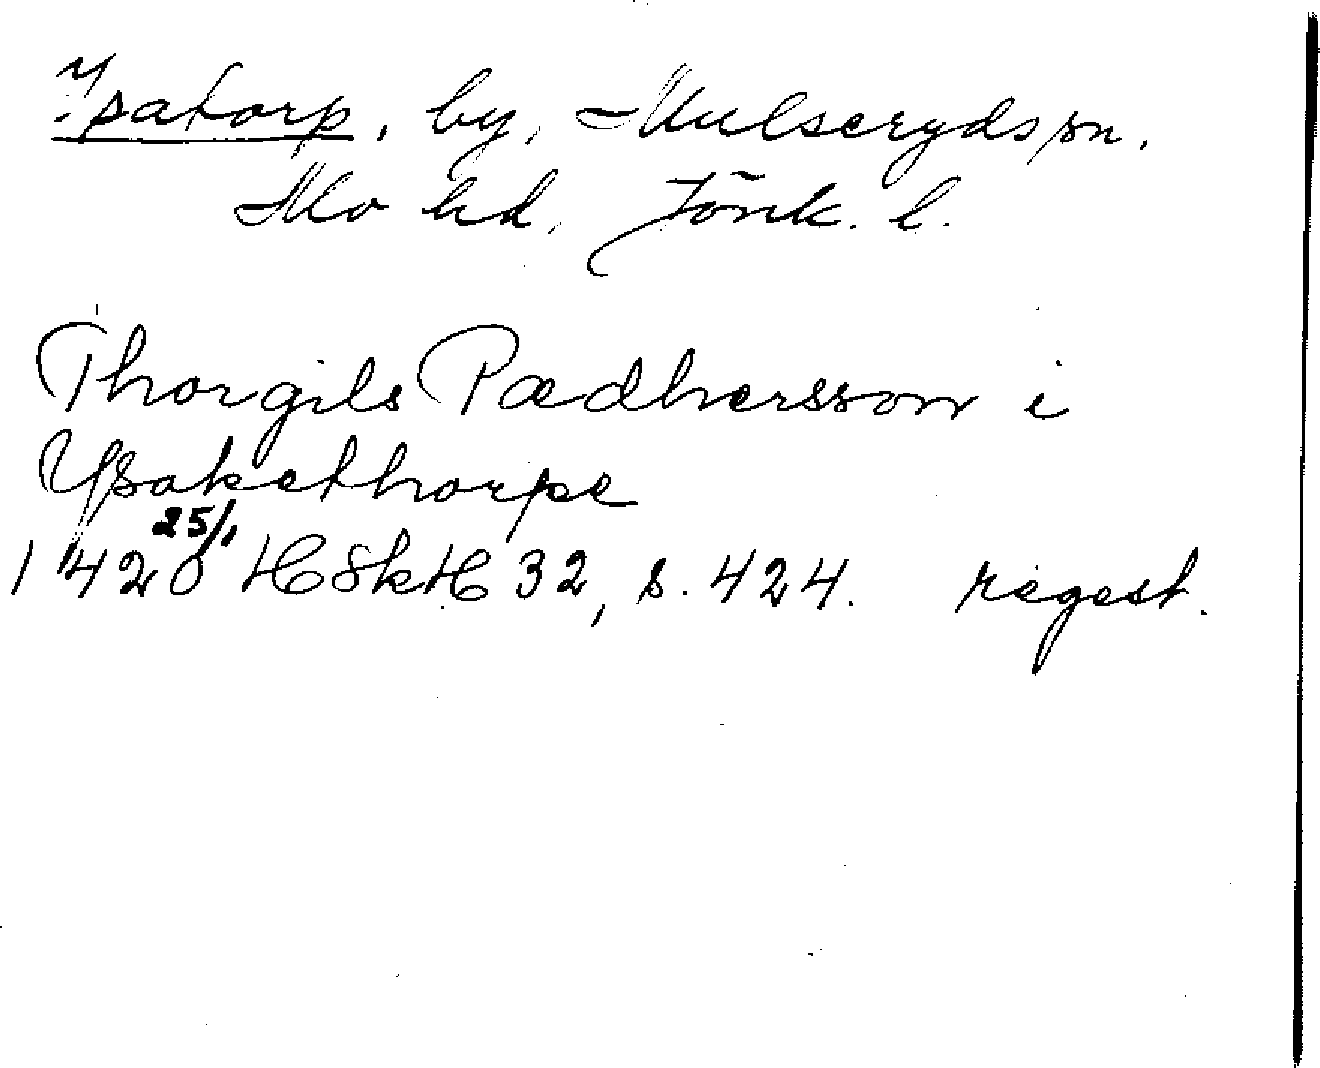 Ysatorp, by, Mulseryds sn.
Mo hd. Jönk. l.
Thorgils Pædhersson i
Ysakethorpe
1420 25/1 HSkH 32, s. 424. regest.